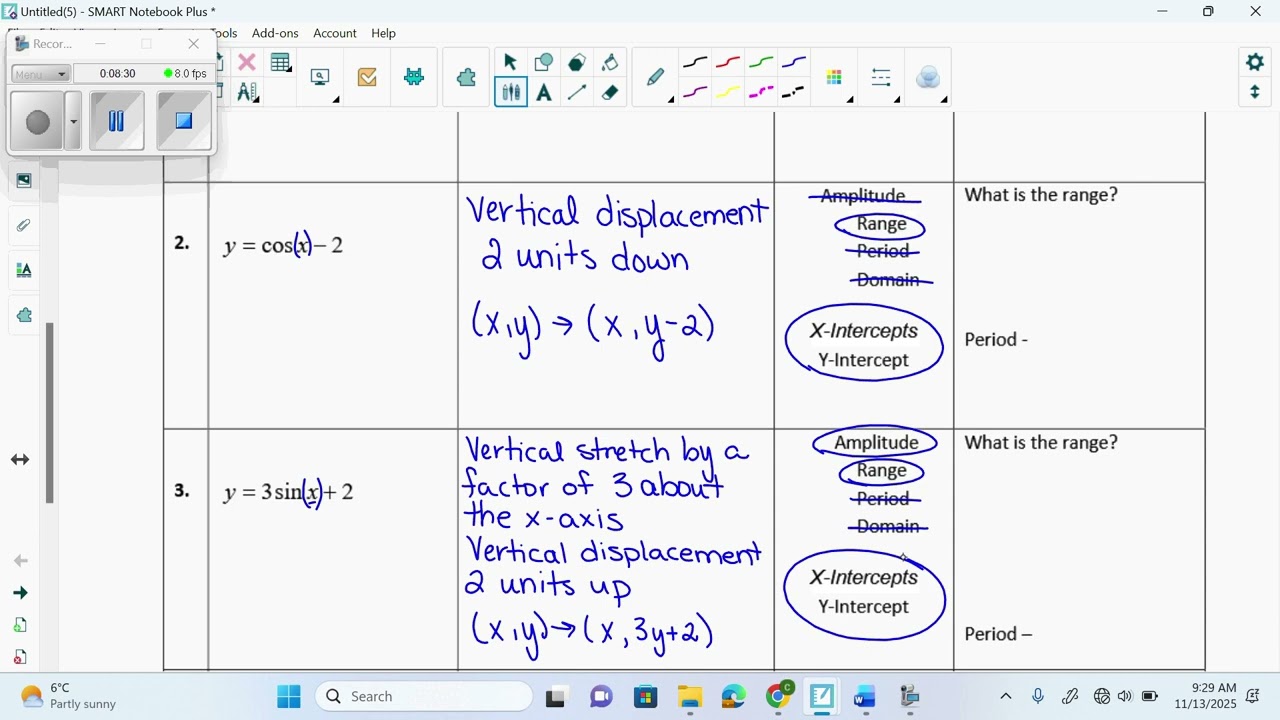 Untitled(5) - SMART Notebook Plus *
Tools Add-ons Account Help
Recor...
Menu 0:08:30 8.0 fps
2. y = cos(x) - 2
Vertical displacement
2 units down
(x,y) → (x, y-2)
Amplitude
Range
Period
Domain
X-Intercepts
Y-Intercept
What is the range?
Period -
3. y = 3 sin(x) + 2
Vertical stretch by a
factor of 3 about
the x-axis
Vertical displacement
2 units up
(x,y) → (x, 3y+2)
Amplitude
Range
Period
Domain
X-Intercepts
Y-Intercept
What is the range?
Period –
6°C
Partly sunny
Search
9:29 AM
11/13/2025